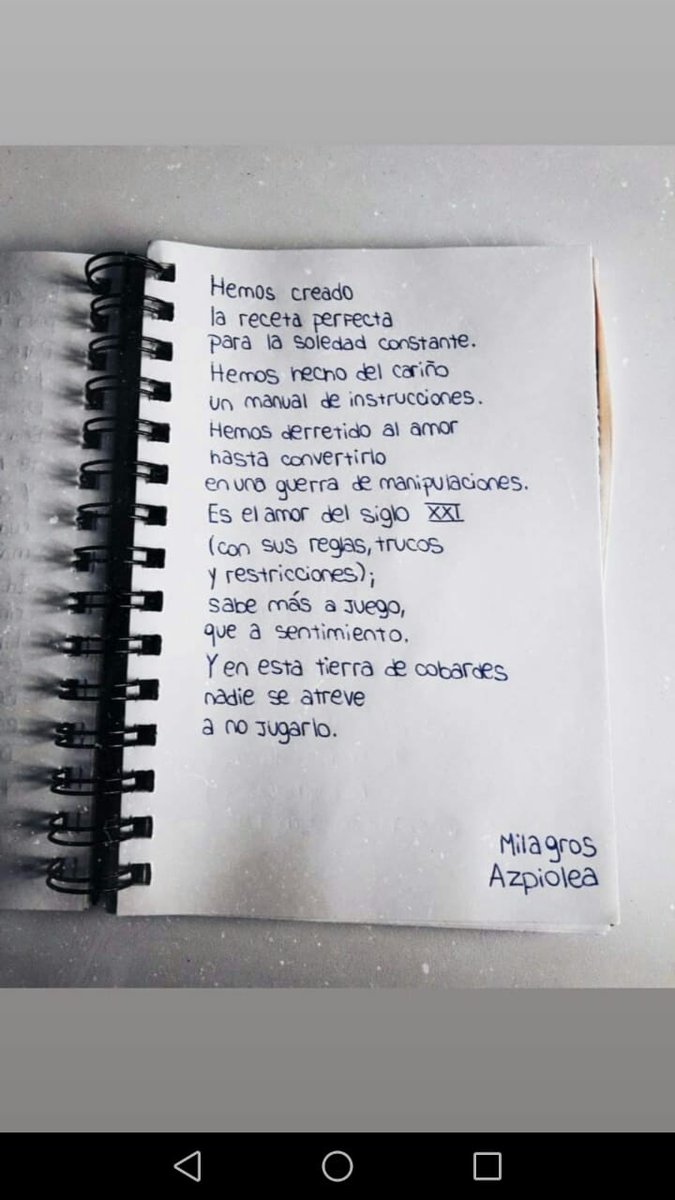 Hemos creado
la receta perfecta
para la soledad constante.
Hemos hecho del cariño
un manual de instrucciones.
Hemos derretido al amor
hasta convertirlo
en una guerra de manipulaciones.
Es el amor del siglo XXI
(con sus reglas, trucos
y restricciones);
sabe más a juego,
que a sentimiento.
Y en esta tierra de cobardes
nadie se atreve
a no jugarlo.
Milagros
Azpiolea